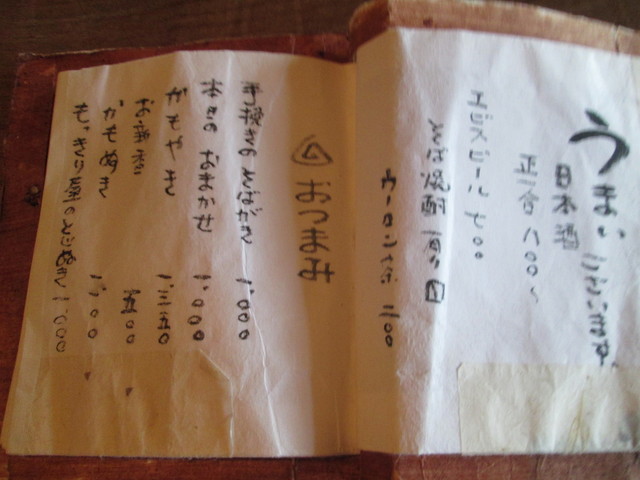 うまい ございます。
日本酒
正一合 八〇〇〜
ヱビスビール 七〇〇
そば焼酎 有り
ウーロン茶 二〇〇
おつまみ
手挽きのそばがき 一、〇〇〇
本きの おまかせ 一、〇〇〇
かもやき 一、三五〇
お新香 五〇〇
かもぬき 一、一〇〇
もっきり屋のとじぬき 一、〇〇〇